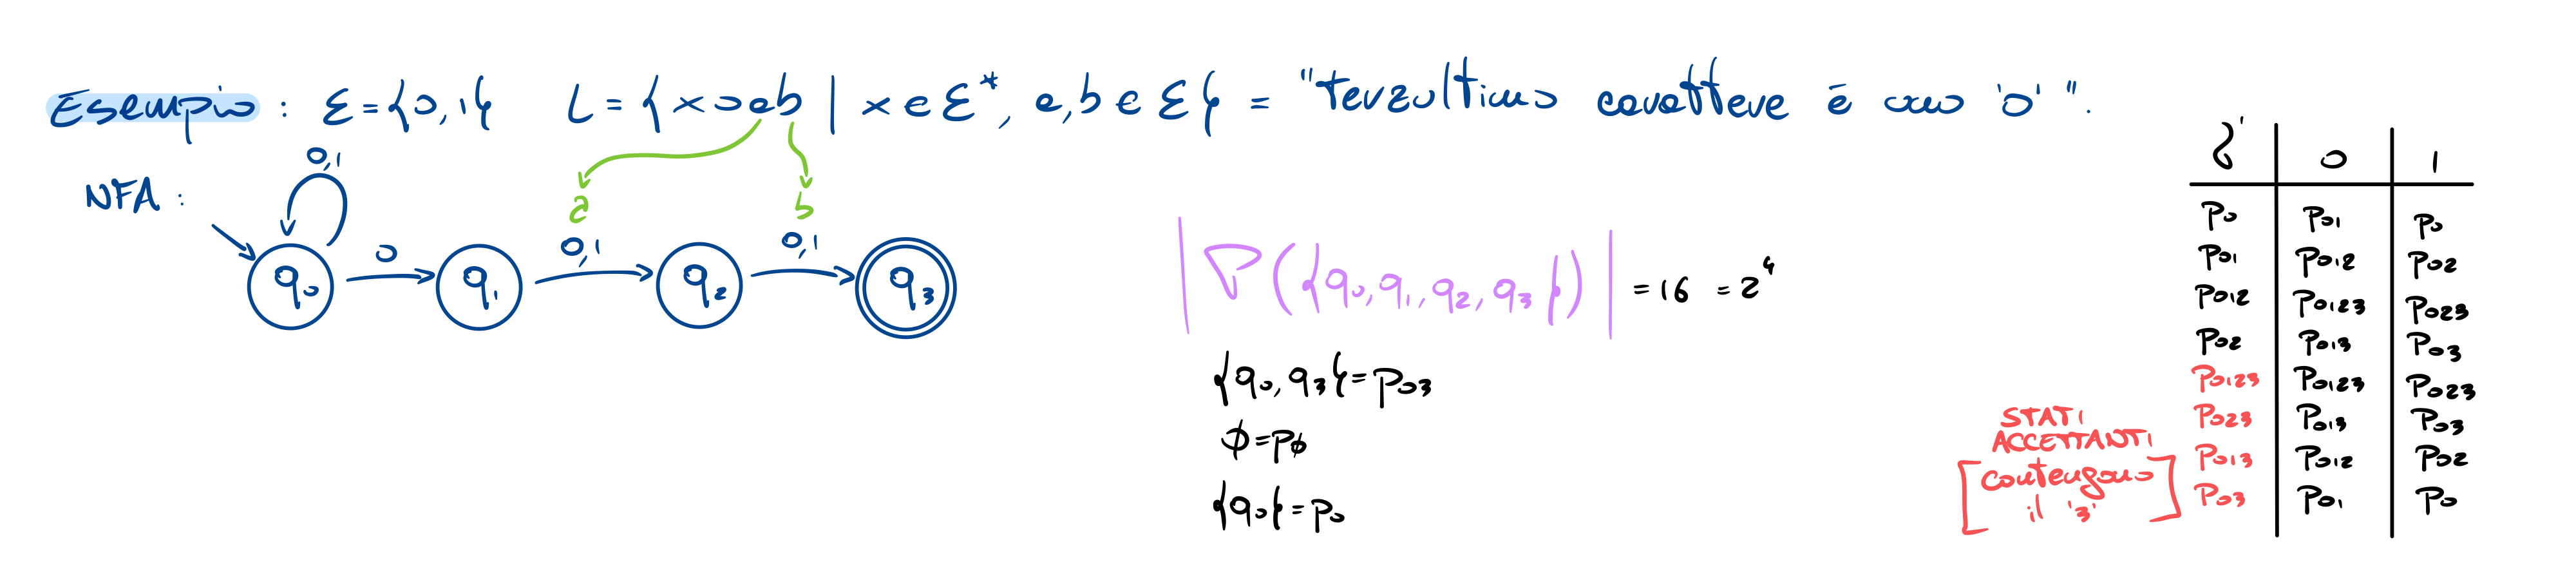 Esempio : Σ={0,1} L={x0ab | x∈Σ*, a,b∈Σ} = "terzultimo carattere è uno '0'".
NFA :
0,1
a b
0 0,1 0,1
q0 q1 q2 q3
|P({q0,q1,q2,q3})| = 16 = 2^4
{q0,q3}=p03
∅=p∅
{q0}=p0
δ' 0 1
p0 p01 p0
p01 p012 p02
p012 p0123 p023
p02 p013 p03
p0123 p0123 p023
p023 p013 p03
p013 p012 p02
p03 p01 p0
STATI
ACCETTANTI
[contengono
il '3']